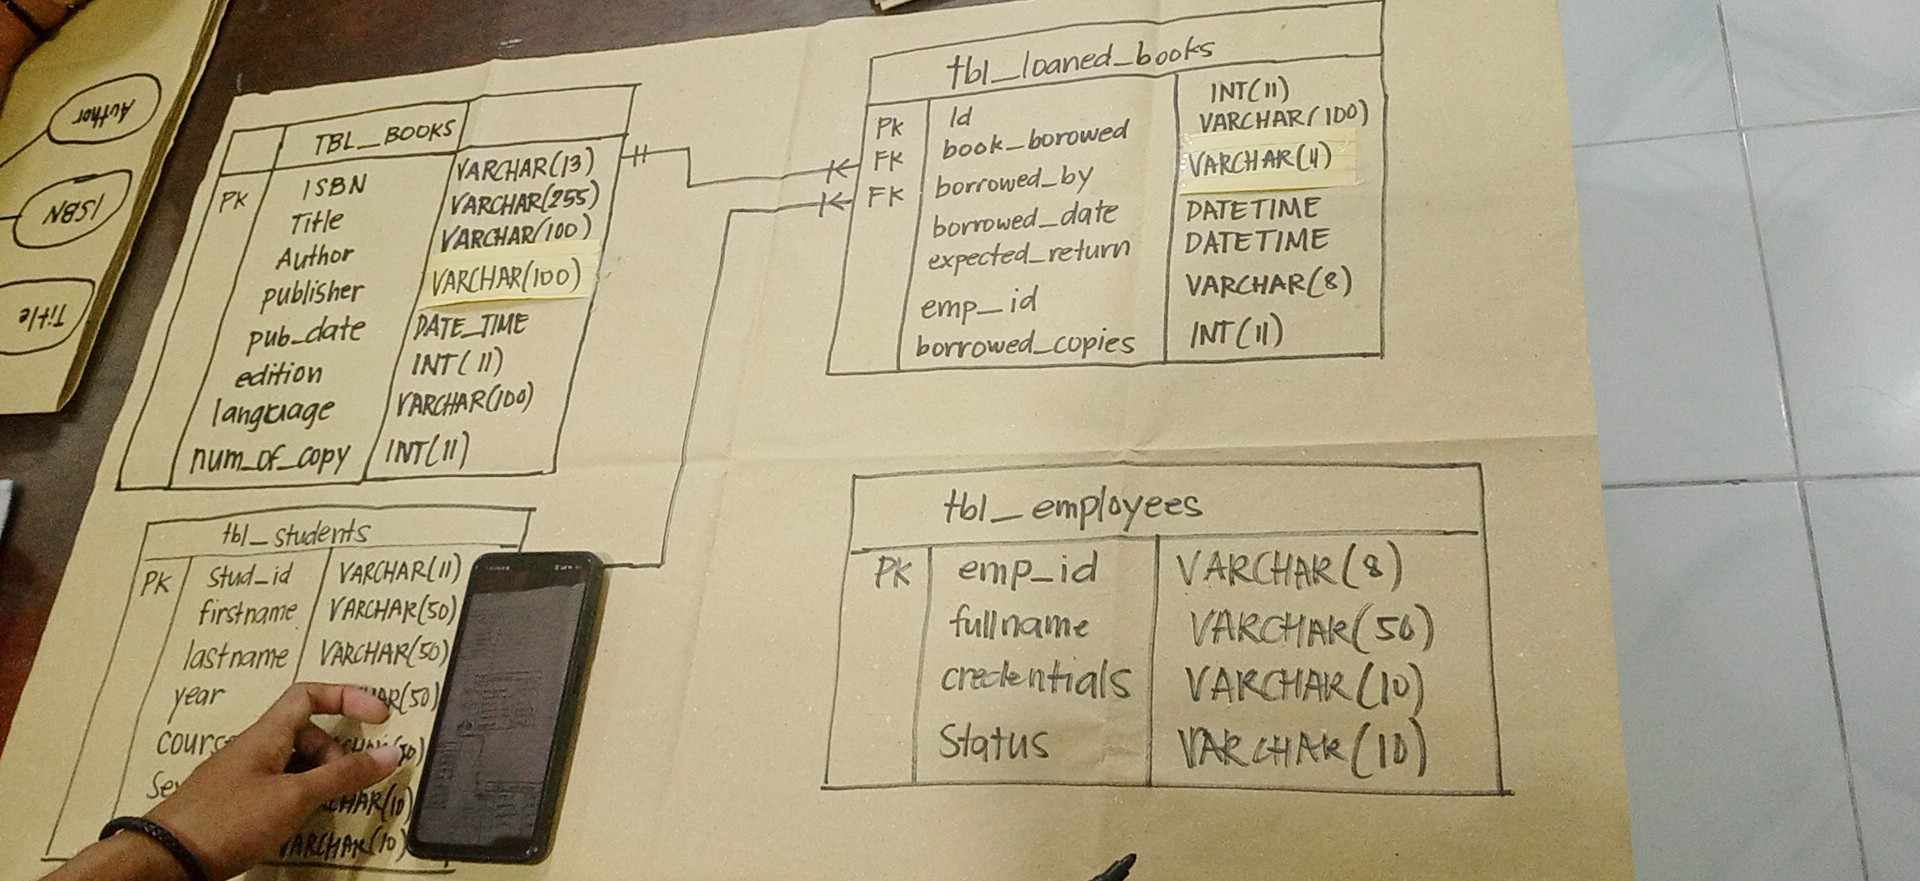 Author
ISBN
Title
TBL_BOOKS
PK ISBN VARCHAR(13)
Title VARCHAR(255)
Author VARCHAR(100)
publisher VARCHAR(100)
pub_date DATE_TIME
edition INT(11)
language VARCHAR(100)
num_of_copy INT(11)
tbl_loaned_books
PK Id INT(11)
FK book_borowed VARCHAR(100)
FK borrowed_by VARCHAR(11)
borrowed_date DATETIME
expected_return DATETIME
emp_id VARCHAR(8)
borrowed_copies INT(11)
tbl_students
PK stud_id VARCHAR(11)
firstname VARCHAR(50)
lastname VARCHAR(50)
year
VARCHAR(10)
tbl_employees
PK emp_id VARCHAR(8)
fullname VARCHAR(50)
credentials VARCHAR(10)
Status VARCHAR(10)